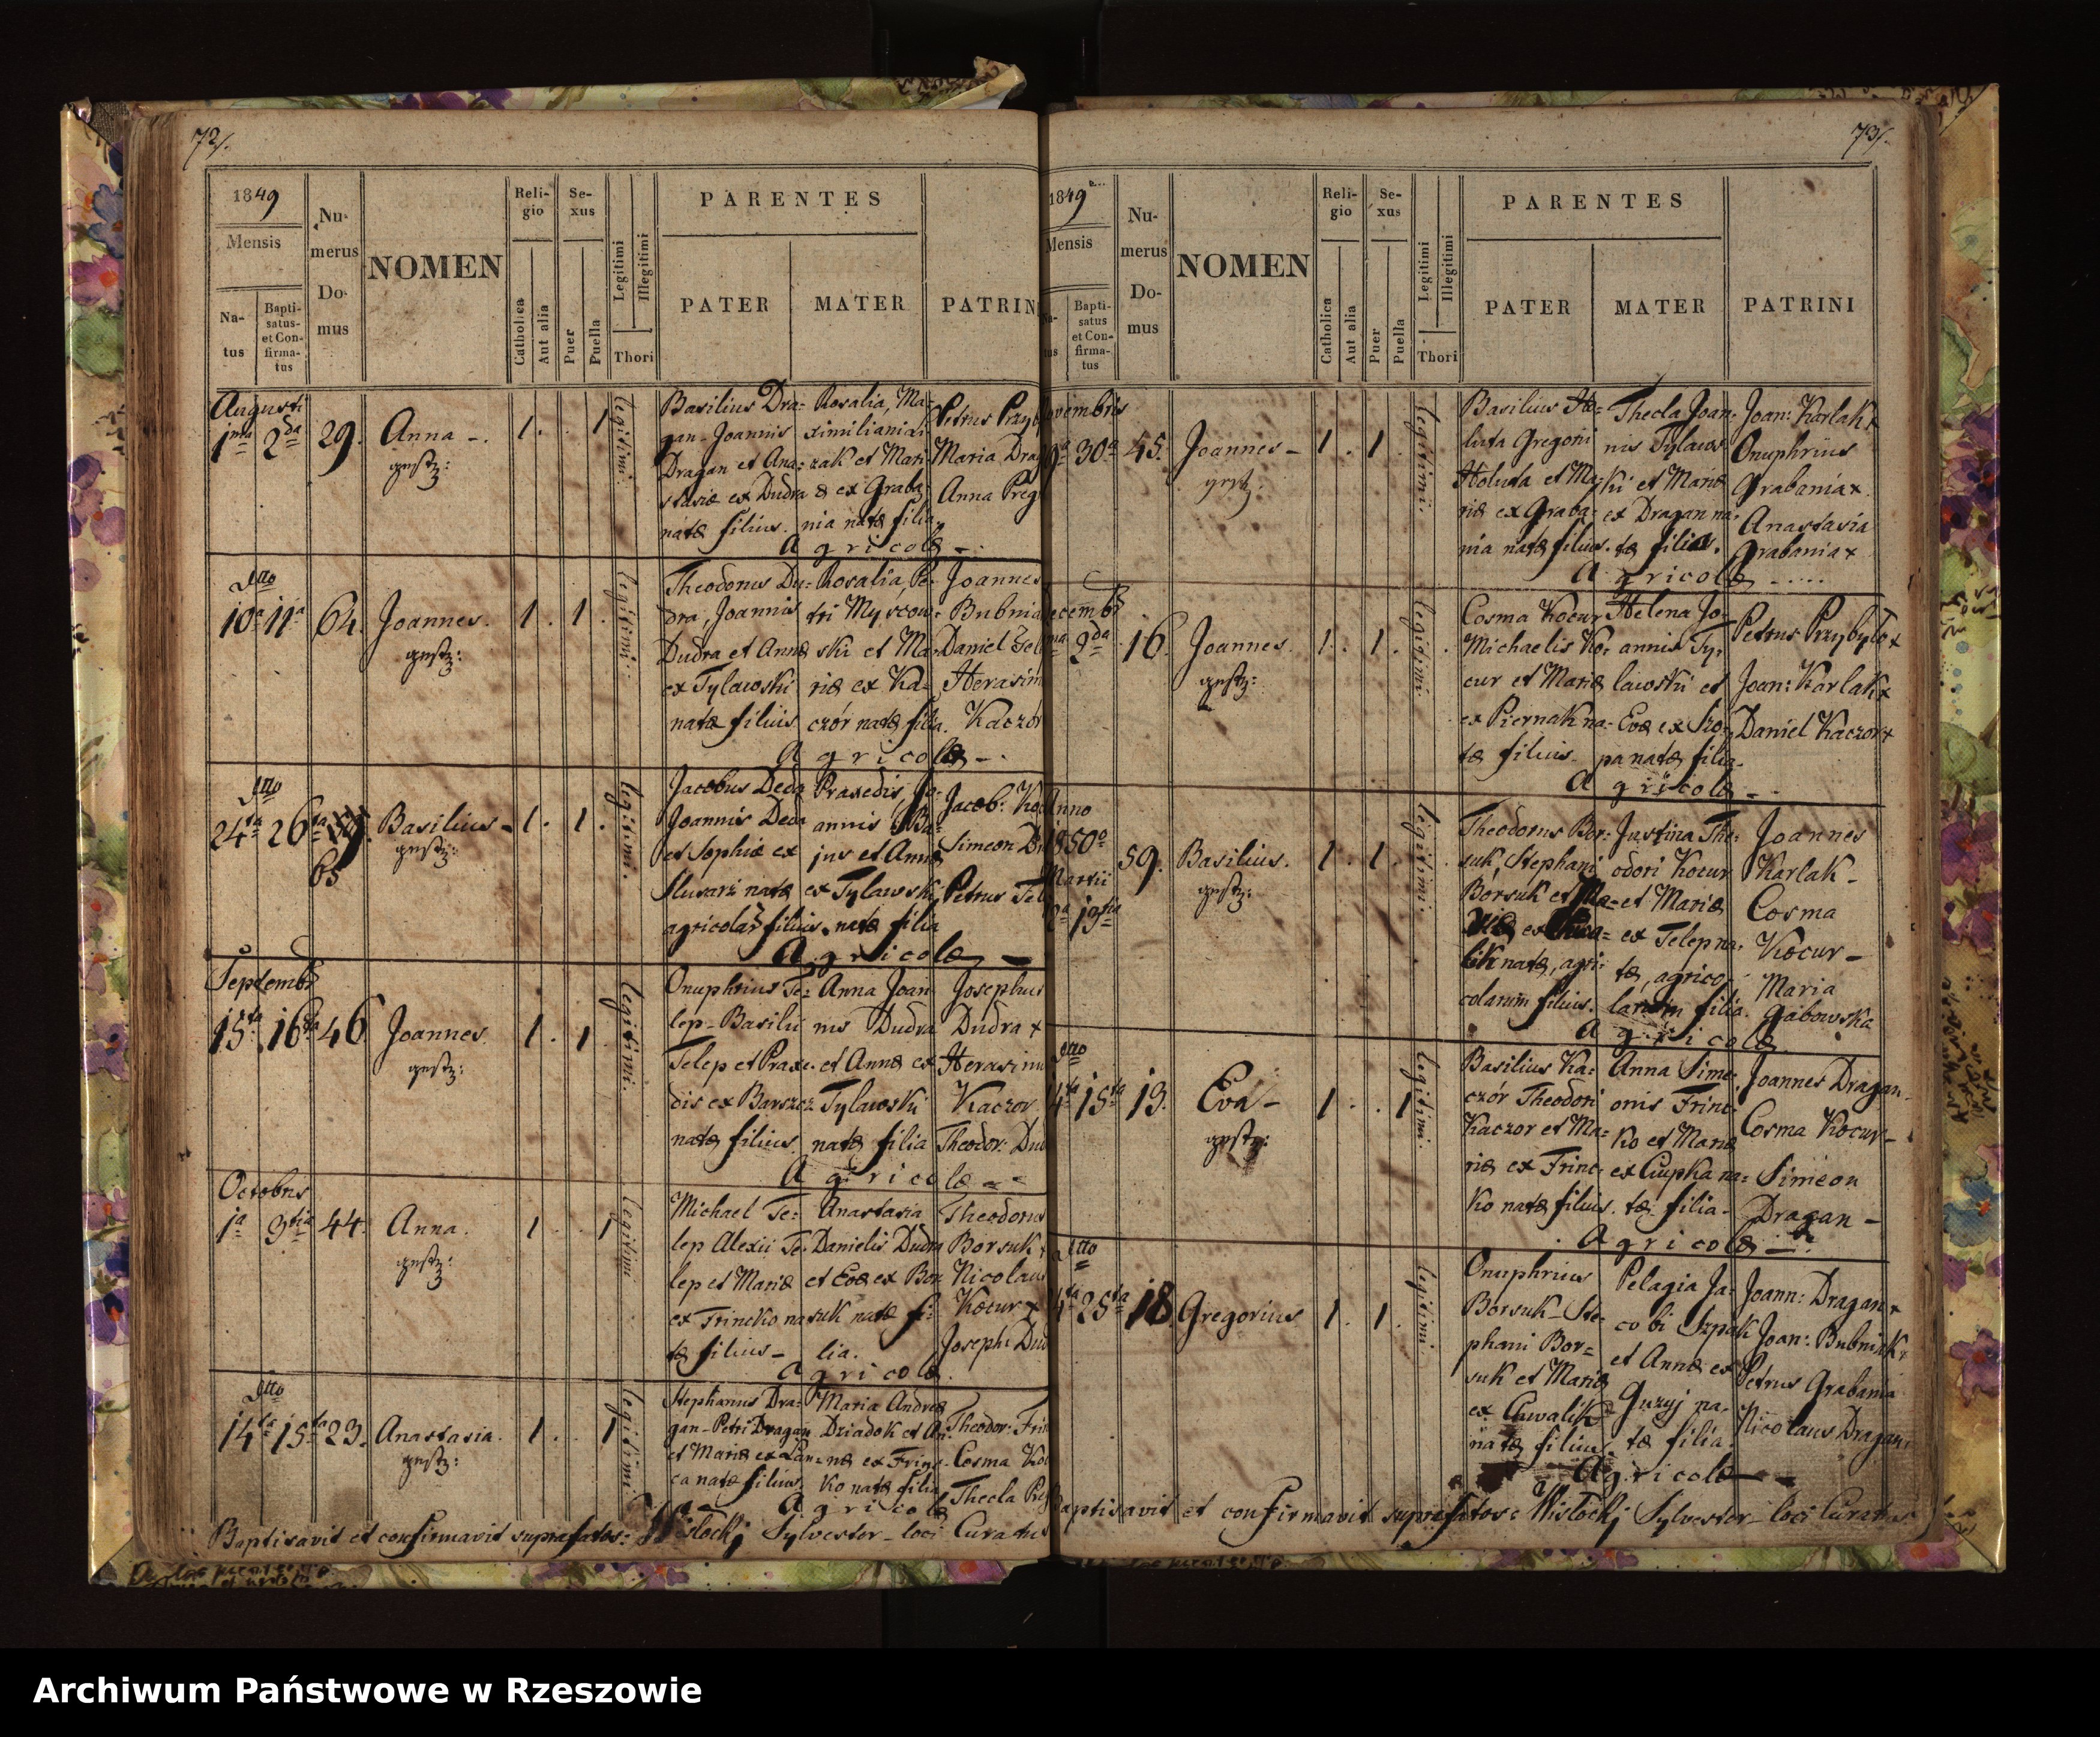 72/.
1849
Mensis
Na-
tus
Bapti-
satus-
et Con-
firma-
tus
Nu-
merus
Do-
mus
NOMEN
Reli-
gio
Catholica
Aut alia
Se-
xus
Puer
Puella
Legitimi
Illegitimi
Thori
PARENTES
PATER
MATER
PATRIN
Augusti
1ma 2da 29. Anna -. 1. 1 legitimi.
gestz:
Basilius Dra-
gan - Joannis
Dragan et Ana-
stasiæ ex Dudra
natæ filius.
Rosalia, Ma-
ximiliani
zak et Mari-
æ ex Graba-
nia natæ filia.
Petrus Przyb
Maria Drag
Anna Preg
Agricolæ -.
dtto
10a 11a 64. Joannes. 1. 1. legitimi.
gestz:
Theodorus Du-
dra, Joannis
Dudra et Annæ
ex Tylawski
natæ filius.
Rosalia, Pe-
tri Myscow-
ski et Ma-
riæ ex Ka-
czór natæ filia.
Joannes
Bubnia
Daniel Tel
Herasim
Kaczór
Agricolæ -.
dtto
24ta 26ta 59. Basilius - 1. 1. legitimi.
65
gestz:
Jacobus Deda
Joannis Deda
et Sophiæ ex
Slusarz natæ
agricolar filius.
Praxedis, Jo-
annis Ba-
jus et Annæ
ex Tylawski
natæ filia
Jacob: Ko
Simeon Dr
Petrus Tel
Agricolæ -
Septembr
15ta 16ta 46 Joannes. 1. 1 legitimi.
gestz:
Onuphrius Te-
lep - Basilii
Telep et Praxe-
dis ex Barszcz
natæ filius.
Anna Joan
nis Dudra
et Annæ ex
Tylawski
natæ filia
Josephus
Dudra x
Herasim
Kaczor
Theodor: Dud
Agricolæ
Octobris
1a 3tia 44. Anna. 1 1 legitimi
gestz:
Michael Te-
lep Alexii Te-
lep et Mariæ
ex Trincko na-
tæ filius -
Anastasia
Danielis Dudra
et Evæ ex Bor
suk natæ fi-
lia.
Theodorus
Borsuk x
Nicolaus
Kocur x
Joseph: Dud
Agricolæ
dtto
14ta 15ta 23. Anastasia. 1. 1 legitimi
gestz:
Stephanus Dra-
gan - Petri Dragan
et Mariæ ex Lan-
ca natæ filius.
Maria Andreæ
Dziadok et An-
næ ex Trinc-
ko natæ filia
Theodor: Trin
Cosma Ko
Thecla Pre
Agricolæ
Baptisavit et confirmavit suprafatos: Wisłockj Sylvester - loci Curatus
73/.
1849
Mensis
Bapti-
satus
et Con-
firma-
tus
Nu-
merus
Do-
mus
NOMEN
Reli-
gio
Catholica
Aut alia
Se-
xus
Puer
Puella
Legitimi
Illegitimi
Thori
PARENTES
PATER
MATER
PATRINI
ovembris
9a 30a 45. Joannes - 1. 1. legitimi.
gestz:
Basilius Ho-
luta Gregorii
Holuta et Ma-
riæ ex Graba-
nia natæ filius.
Thecla Joan-
nis Tylaws
ki et Mariæ
ex Dragan na-
tæ filia.
Joan: Karlak x
Onuphrius
Grabania x.
Anastasia
Grabania x
Agricolæ .....
ecembr
ma 2da 16. Joannes. 1. 1. legitimi.
gestz:
Cosma Kocur
Michaelis Ko-
cur et Mariæ
ex Piernak na-
tæ filius.
Helena Jo-
annis Ty-
lawski et
Evæ ex Szo-
pa natæ filia.
Petrus Przybyło x
Joan: Karlak x
Daniel Kaczor x
Agricolæ -.
Anno
1850o
Martii
13tia 59. Basilius. 1. 1. legitimi.
gestz:
Theodorus Bor-
suk, Stephani
Borsuk et Ma-
riæ ex Chwa-
lik natæ, agri-
colarum filius.
Justina The-
odori Kocur
et Mariæ
ex Telep na-
tæ, agrico-
larum filia.
Joannes
Karlak -
Cosma
Kocur -
Maria
Gabowska
Agricolæ
dtto
4ta 15ta 13. Eva - 1. . 1 legitimi.
gestz:
Basilius Ka-
czór Theodori
Kaczor et Ma-
riæ ex Trinc-
ko natæ filius.
Anna Sime-
onis Trinc-
ko et Mariæ
ex Ciupka na-
tæ filia -
Joannes Dragan.
Cosma Kocur -
Simeon
Dragan -
Agricolæ -
dtto
4ta 25ta 18. Gregorius 1. 1. legitimi
Onuphrius
Borsuk - Ste-
phani Bor-
suk et Mariæ
ex Chwalik
natæ filius.
Pelagia Ja-
cobi Szpak
et Annæ ex
Guzyj na-
tæ filia.
Joann: Dragan x
Joan: Bubniak x
Petrus Grabania
Nicolaus Dragan
Agricolæ -
Baptisavit et confirmavit suprafatos: Wisłockj Sylvester - loci Curatus
Archiwum Państwowe w Rzeszowie